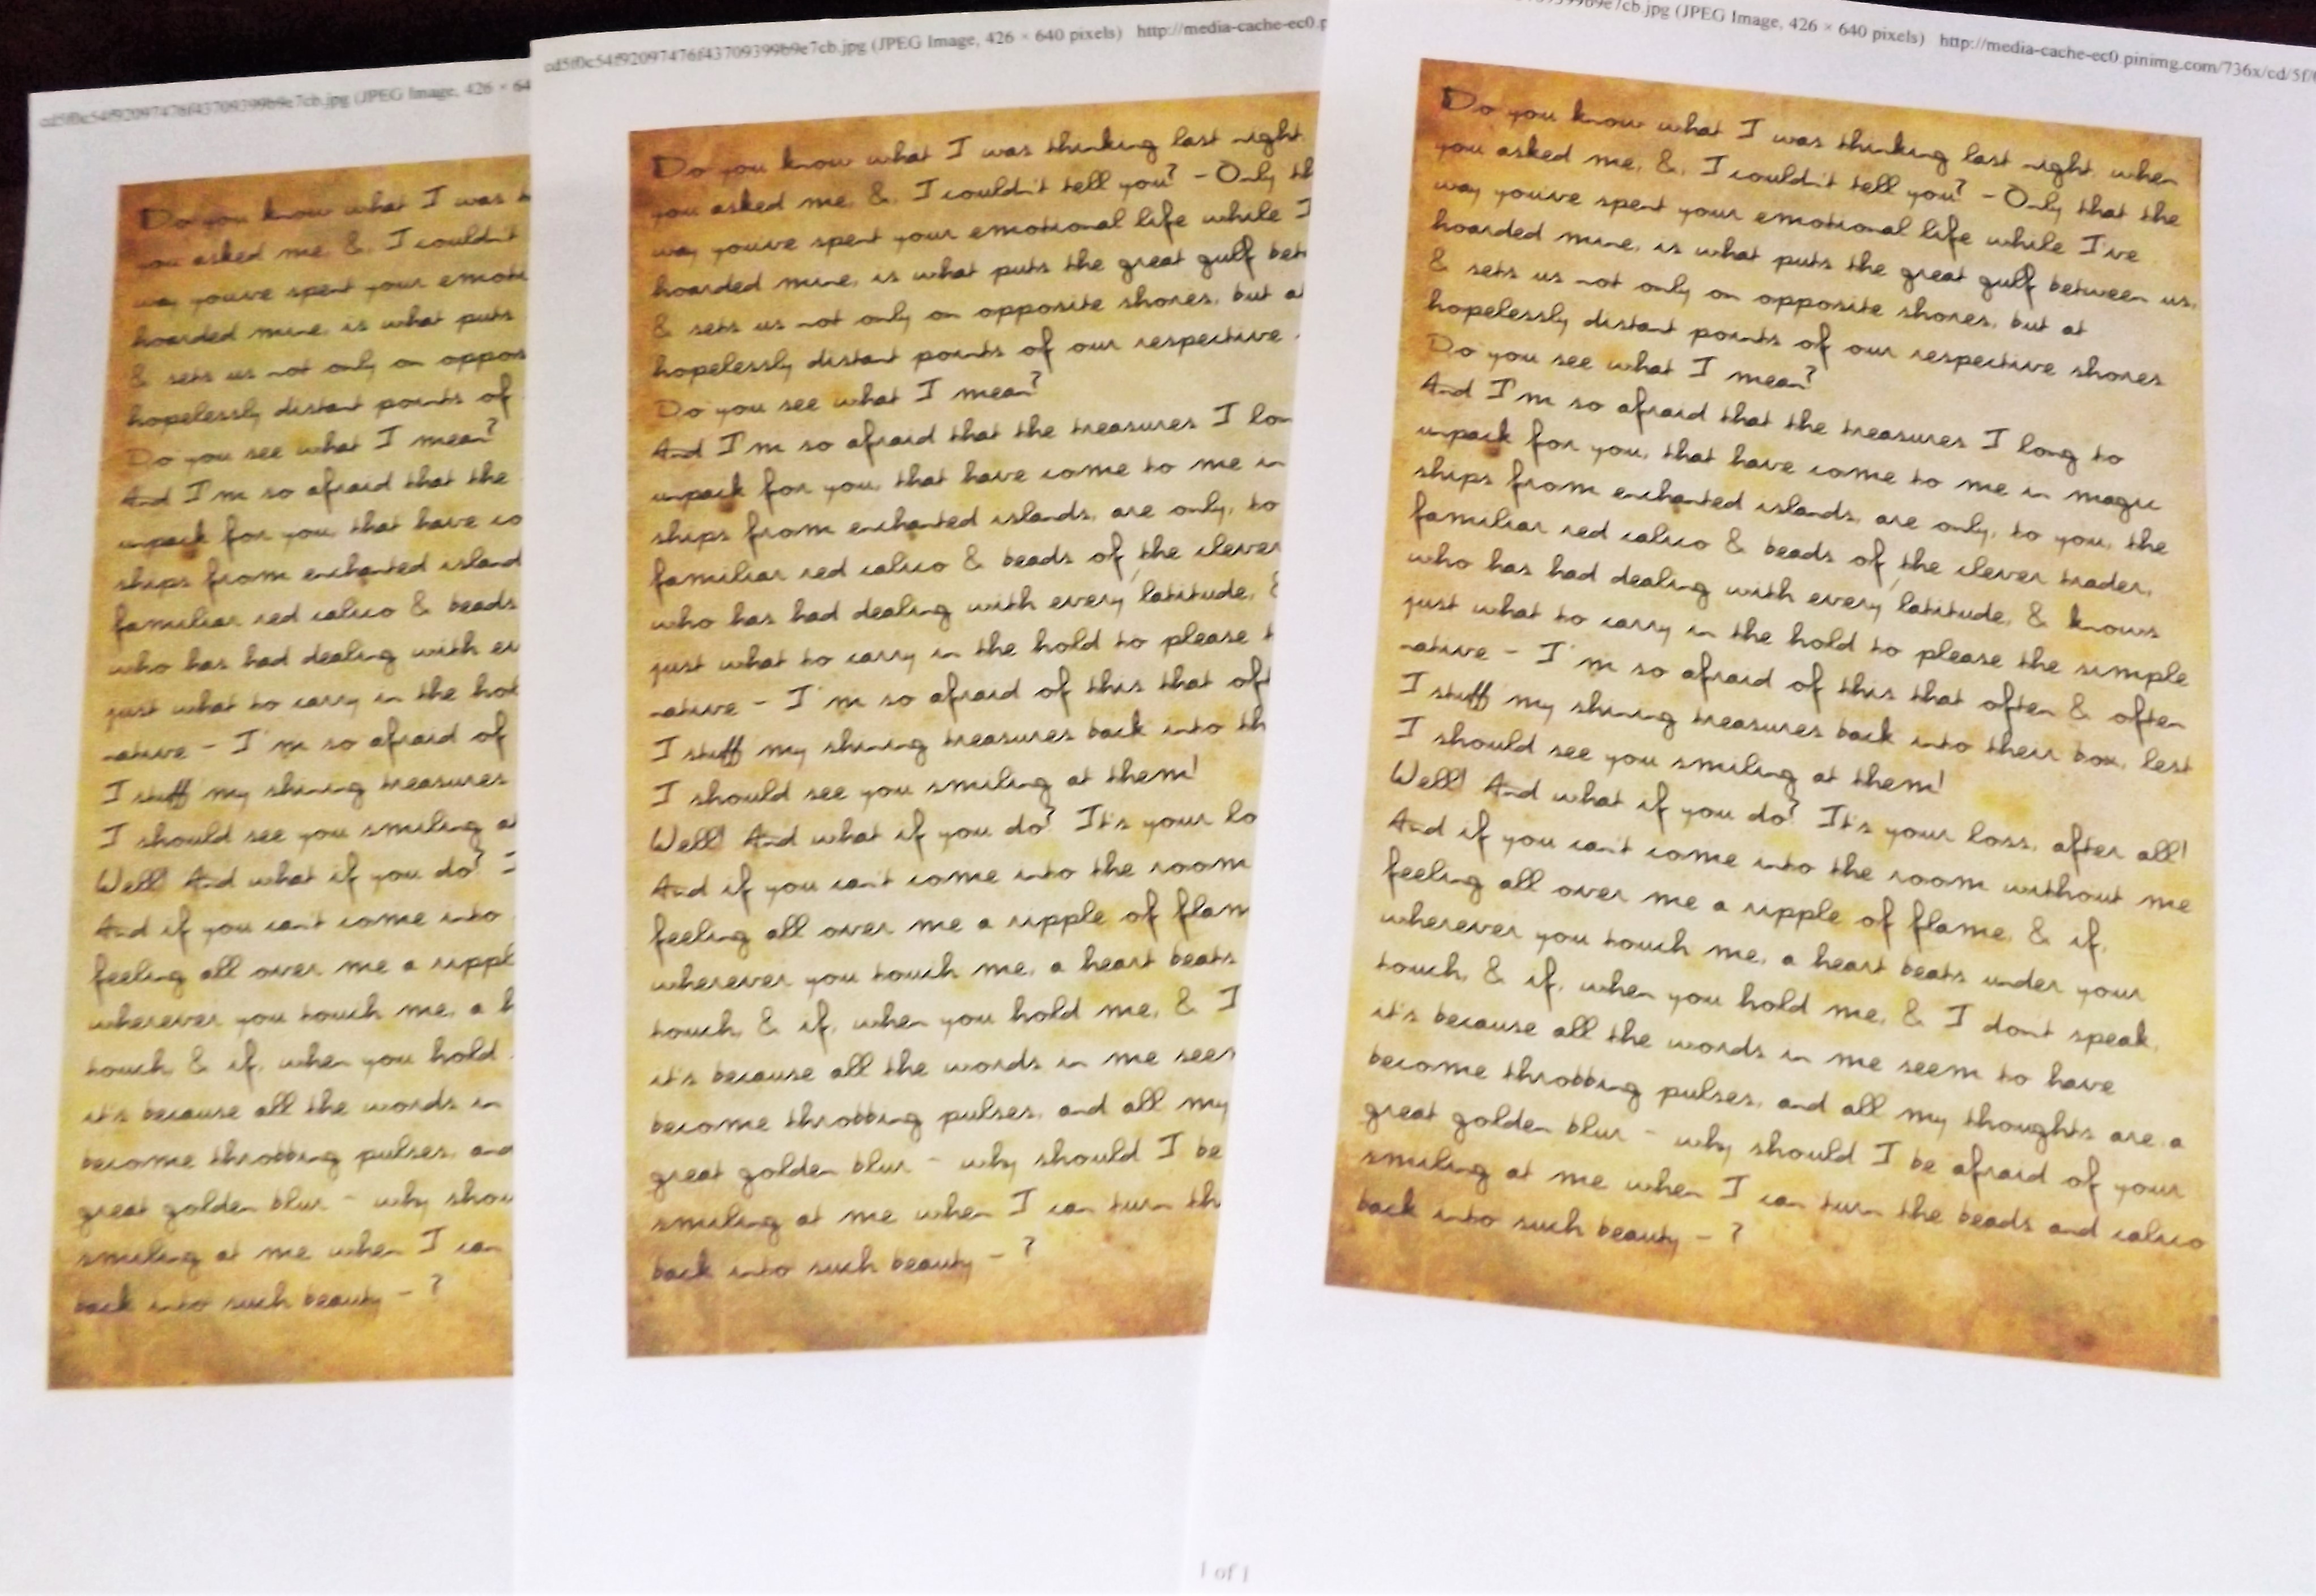 cd5f0c54f92097476f43709399b9e7cb.jpg (JPEG Image, 426 × 64
Do you know what I was t
you asked me, &, I couldn't
way youi've spent your emoti
hoarded mine, is what puts
& sets us not only on oppos
hopelessly distant points of
Do you see what I mean?
And I'm so afraid that the
unpack for you, that have co
ships from enchanted island
familiar red calico & beads
who has had dealing with ev
just what to carry in the hol
native - I'm so afraid of
I stuff my shining treasures
I should see you smiling at
Well! And what if you do? I
And if you can't come into
feeling all over me a rippl
wherever you touch me, a h
touch, & if, when you hold
it's because all the words in
become throbbing pulses, and
great golden blur - why shou
smiling at me when I can
back into such beauty - ?
cd5f0c54f92097476f43709399b9e7cb.jpg (JPEG Image, 426 × 640 pixels) http://media-cache-ec0.p
Do you know what I was thinking last night,
you asked me, &, I couldn't tell you? - Only th
way youi've spent your emotional life while I
hoarded mine, is what puts the great gulf betw
& sets us not only on opposite shores, but at
hopelessly distant points of our respective
Do you see what I mean?
And I'm so afraid that the treasures I lon
unpack for you, that have come to me in
ships from enchanted islands, are only, to
familiar red calico & beads of the clever
who has had dealing with every latitude, &
just what to carry in the hold to please t
native - I'm so afraid of this that oft
I stuff my shining treasures back into th
I should see you smiling at them!
Well! And what if you do? It's your lo
And if you can't come into the room
feeling all over me a ripple of flam
wherever you touch me, a heart beats
touch, & if, when you hold me, & I
it's because all the words in me seem
become throbbing pulses, and all my
great golden blur - why should I be
smiling at me when I can turn th
back into such beauty - ?
1 of 1
9b9e7cb.jpg (JPEG Image, 426 × 640 pixels) http://media-cache-ec0.pinimg.com/736x/cd/5f/
Do you know what I was thinking last night, when
you asked me, &, I couldn't tell you? - Only that the
way youi've spent your emotional life while I've
hoarded mine, is what puts the great gulf between us,
& sets us not only on opposite shores, but at
hopelessly distant points of our respective shores
Do you see what I mean?
And I'm so afraid that the treasures I long to
unpack for you, that have come to me in magic
ships from enchanted islands, are only, to you, the
familiar red calico & beads of the clever trader,
who has had dealing with every latitude, & knows
just what to carry in the hold to please the simple
native - I'm so afraid of this that often & often
I stuff my shining treasures back into their box, lest
I should see you smiling at them!
Well! And what if you do? It's your loss, after all!
And if you can't come into the room without me
feeling all over me a ripple of flame, & if,
wherever you touch me, a heart beats under your
touch, & if, when you hold me, & I don't speak,
it's because all the words in me seem to have
become throbbing pulses, and all my thoughts are a
great golden blur - why should I be afraid of your
smiling at me when I can turn the beads and calico
back into such beauty - ?